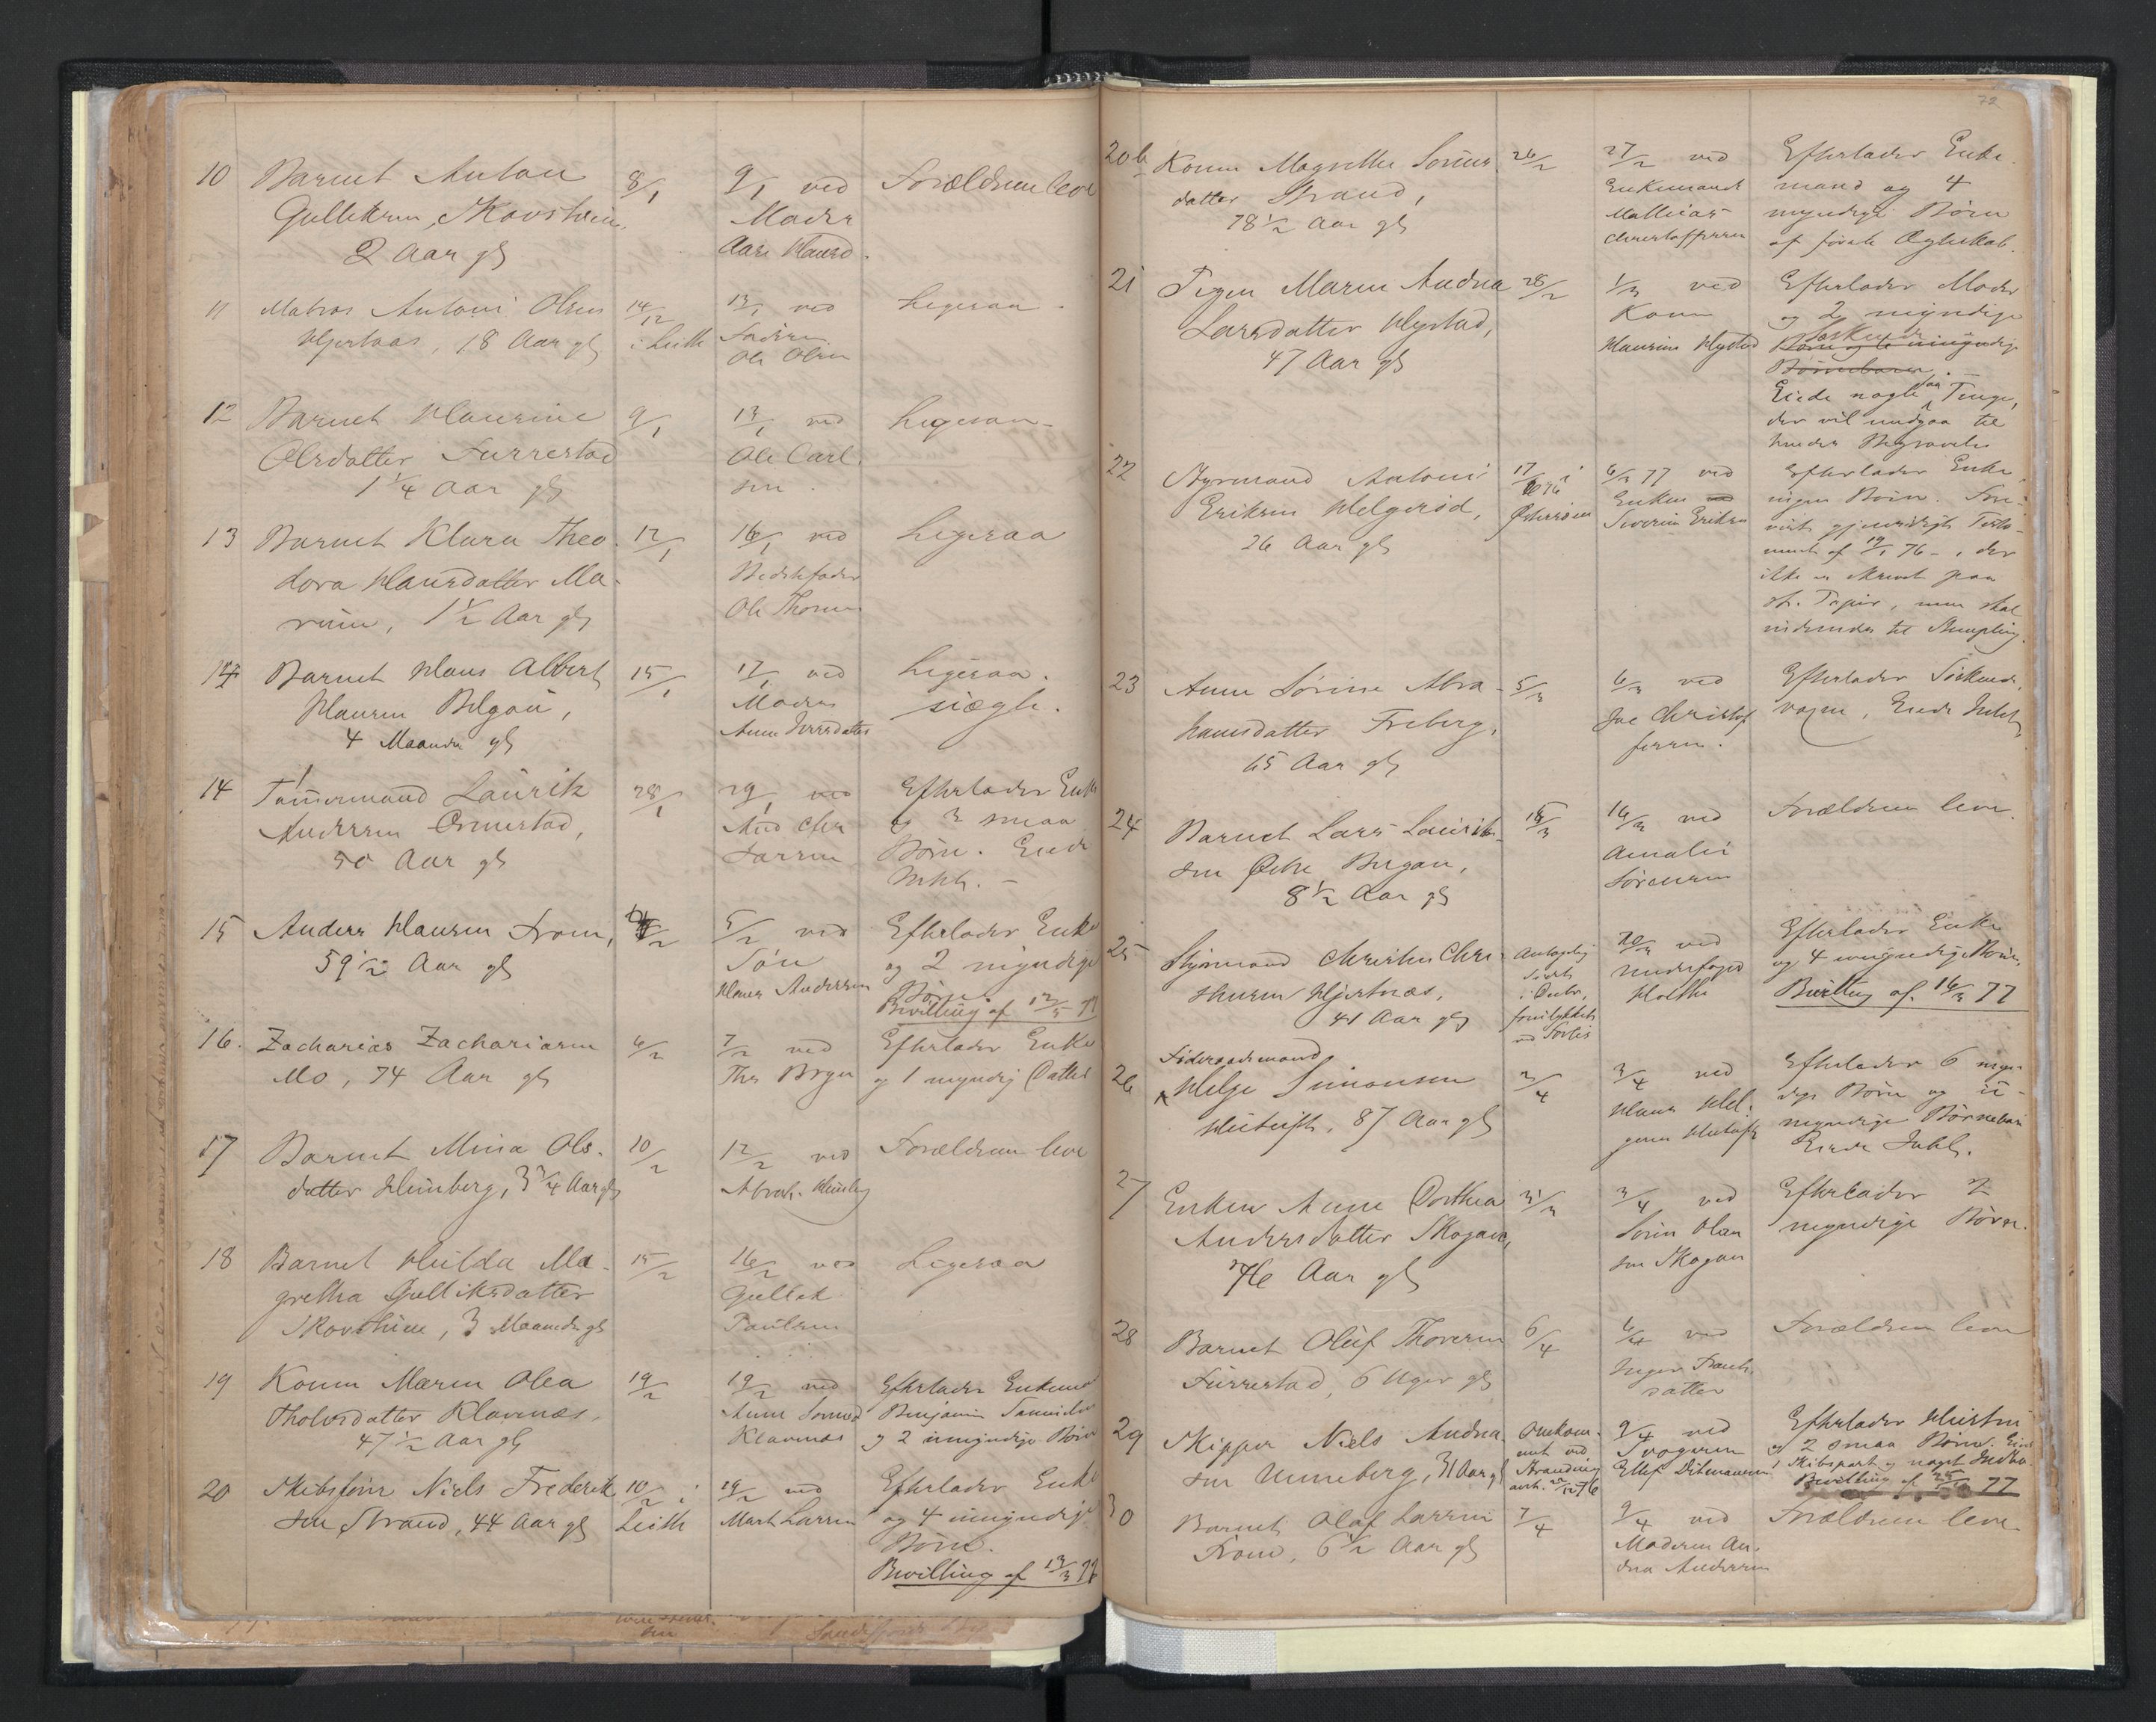 10 Barnet Anton 8/1 9/1 ved Forældrene leve
Gulliksen, Skovsheim, Moder
2 Aar gl Aase Hansd.
11 Matros Antoni Olsen 14/12 13/1 ved Ligesaa.
Hjertaas, 18 Aar gl i Leith Faderen
Ole Olsen
12 Barnet Hansine 9/1 13/1 ved Ligesaa
Olsdatter Furrestad Ole Carl
1 1/4 Aar gl sen.
13 Barnet Klara Theo- 12/1 16/1 ved Ligesaa
dora Hansdatter Ma- Bedstefader
rum, 1 1/2 Aar gl Ole Thorsen
14 Barnet Hans Albert 15/1 17/1 ved Ligesaa.
Hansen Bolgan, Moder
4 Maander gl Anne Iversdatter
14 Tømmermand Laurik 28/1 29/1 ved Efterlader Enke
Andersen Ormestad, And Chr og 3 smaa
50 Aar gl Larsen Børn. Eiede
Intet. -
15 Anders Hansen From, 5/2 ved Efterlader Enke
59 1/2 Aar gl Søn og 2 myndige
Hans Andersen Børn
Bevilling af 12/5 77
16. Zacharias Zachariasen 6/2 7/2 ved Efterlader Enke
Mo, 74 Aar gl Thv Bryn og 1 myndig Datter
17 Barnet Mina Ols- 10/2 12/2 ved Forældrene leve
datter Heimberg, 3 3/4 Aar gl Abrah. Heimberg
18 Barnet Hilda Ma- 15/2 16/2 ved Ligesaa
gretha Gulliksdatter Gullik
Skovsheim, 3 Maander gl Paulsen
19 Konen Maren Olea 19/2 19/2 ved Efterlader Enkemand
Tholvsdatter Klavenæs, Anne Benjamin Samuelsen
47 1/2 Aar gl Klavenæs og 2 umyndige Børn
20 Skibsfører Niels Frederik 10/2 i 19/2 ved Efterlader Enke
sen Strand, 44 Aar gl Leith Mart Larsen og 4 umyndige
Børn.
Bevilling af 13/3 77
72
20b Konen Magrethe Sørens 26/2 27/2 ved Efterlader Enke-
datter Strand, Enkemand mand og 4
78 1/2 Aar gl Mathias myndige Børn
Christoffersen af første Ægteskab.
21 Pigen Maren Andrea 28/2 1/3 ved Efterlader Moder
Larsdatter Hystad, Konen og 2 myndige
47 Aar gl Hansine Hystad Søskende
Eiede nogle faa Penge,
der vil medgaa til
hendes Begravelse
22 Styrmand Antoni 17/ i 6/3 77 ved Efterlader Enke,
Eriksen Helgerød, Østersøen Enken Severin Eriksen ingen Børn.
26 Aar gl gjensidigt Testa-
ment af 19/1 76 -, der
ikke er skrevet paa
st. Papir, men skal
indsendes til Stempling.
23 Anne Sørine Abra- 5/3 6/3 ved Efterlader Søskende,
hamsdatter Freberg, Jac Christof vogne, Eiede Intet
65 Aar gl fersen.
24 Barnet Lars Laurit- 15/3 16/3 ved Forældrene leve.
sen Østre Bergan, Amalie
8 1/2 Aar gl Sørensen
25 Styrmand Christen Chri- Antagelig 20/3 ved Efterlader Enke
stensen Hjertnæs, sidst Underfoged og 4 umyndige Børn,
41 Aar gl i Decbr, Holthe Bevilling af 16/3 77
forulykket
ved
26 Føderaadsmand
Helge Simonsen 2/4 3/4 ved Efterlader 6 myn-
87 Aar gl Hans Hel- dige Børn og u-
gesen myndige Børnebørn
Eiede Intet.
27 Enken Anne Dorthea 31/3 3/4 ved Efterlader 2
Andersdatter Skogan, Søren Olsen myndige Børn.
76 Aar gl Skogan
28 Barnet Oluf Thoresen 6/4 6/4 ved Forældrene leve
Furrestad, 6 Uger gl Inger Frants-
datter
29 Skipper Niels Andrea- Omkom- 9/4 ved Efterlader Hustru
sen Unneberg, 31 Aar gl met ved Svogeren og 2 smaa Børn. Eied
Stranding Ellef Ditmansen 1 Skibspart og noget Indbo.
22/12 76 Bevilling af 25/4 77
30 Barnet Olaf Larsen 7/4 9/4 ved Forældrene leve.
From, 6 1/2 Aar gl Moderen An-
drea Andersen